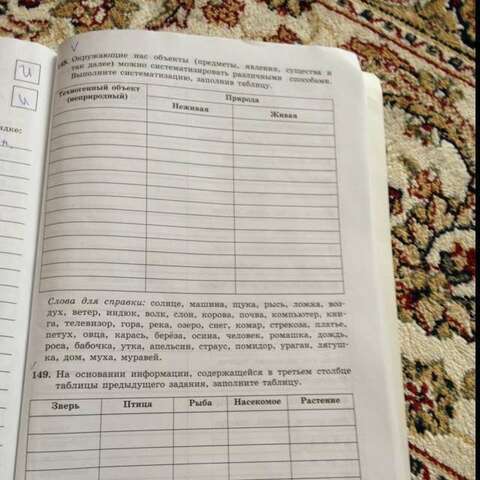 148. Окружающие нас объекты (предметы, явления, существа и
так далее) можно систематизировать различными способами.
Выполните систематизацию, заполнив таблицу.
Техногенный объект
(неприродный)
Природа
Неживая
Живая
Слова для справки: солнце, машина, щука, рысь, ложка, воз-
дух, ветер, индюк, волк, слон, корова, почва, компьютер, кни-
га, телевизор, гора, река, озеро, снег, комар, стрекоза, платье,
петух, овца, карась, берёза, осина, человек, ромашка, дождь,
роса, бабочка, утка, апельсин, страус, помидор, ураган, лягуш-
ка, дом, муха, муравей.
149. На основании информации, содержащейся в третьем столбце
таблицы предыдущего задания, заполните таблицу.
Зверь Птица Рыба Насекомое Растение
и
и